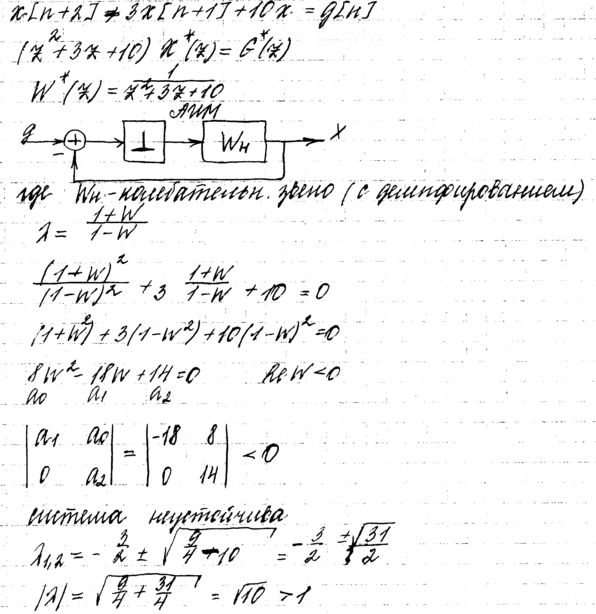 x[n+2] + 3x[n+1] + 10x = g[n]
(z² + 3z + 10) X*(z) = G*(z)
W*(z) = 1/(z² + 3z + 10)
АИМ
g + − ⊥ Wн x
где Wн - колебательн. звено (с демпфированием)
λ = (1+W)/(1-W)
(1+W)²/(1-W)² + 3 (1+W)/(1-W) + 10 = 0
(1+W²) + 3(1-W²) + 10(1-W)² = 0
8W² - 18W + 14 = 0 Re W < 0
a0 a1 a2
|a1 a0| = |-18 8| < 0
|0 a2| |0 14|
система неустойчива
λ1,2 = -3/2 ± √(9/4 - 10) = -3/2 ± √31/2
|λ| = √(9/4 + 31/4) = √10 > 1